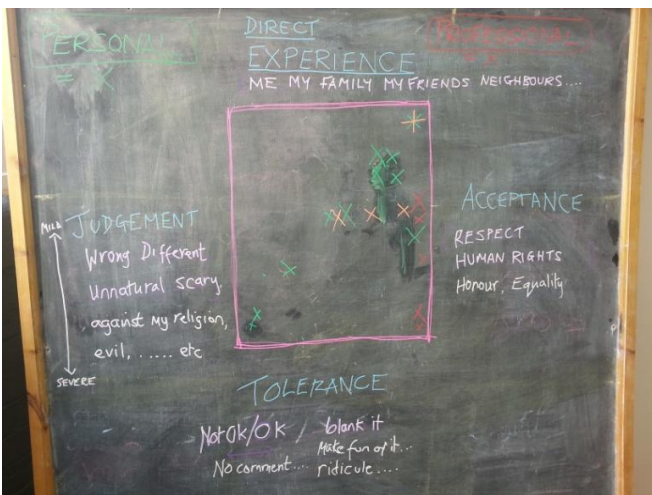 PERSONAL
= X
DIRECT
EXPERIENCE
PROFESSIONAL
ME MY FAMILY MY FRIENDS NEIGHBOURS....
MILD
JUDGEMENT
Wrong Different
Unnatural scary,
against my religion,
evil, ...... etc
SEVERE
ACCEPTANCE
RESPECT
HUMAN RIGHTS
Honour, Equality
TOLERANCE
Not Ok/Ok / blank it
Make fun of it...
No comment.... ridicule....